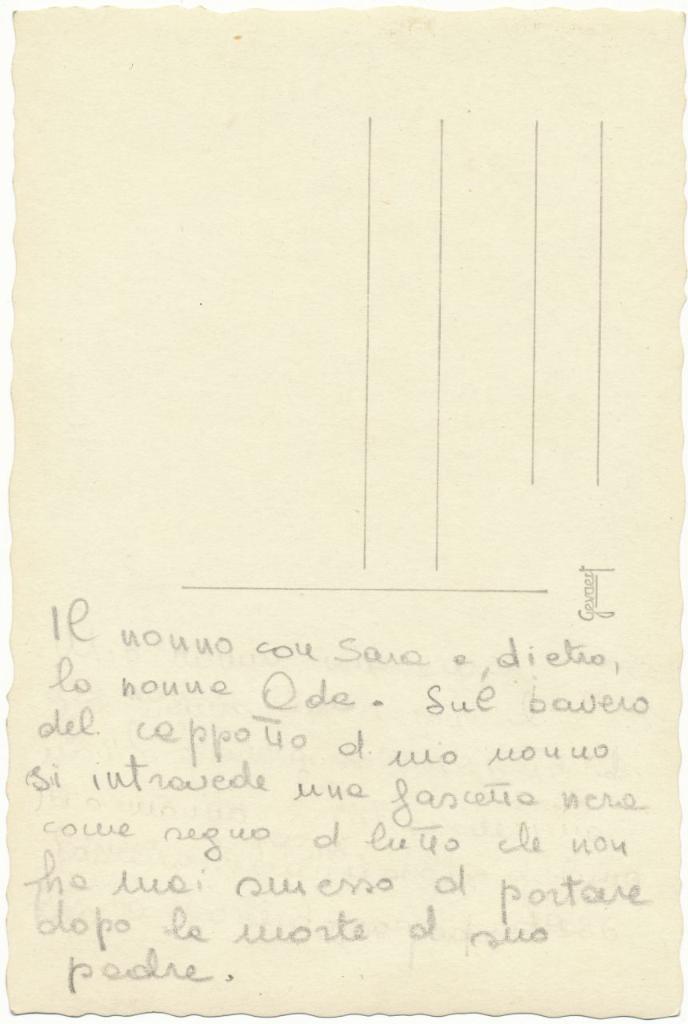 Gevaert
Il nonno con Sara e, dietro,
la nonna Ada. Sul bavero
del cappotto di mio nonno
si intravede una fascetta nera
come segno di lutto che non
ha mai smesso di portare
dopo la morte di suo
padre.